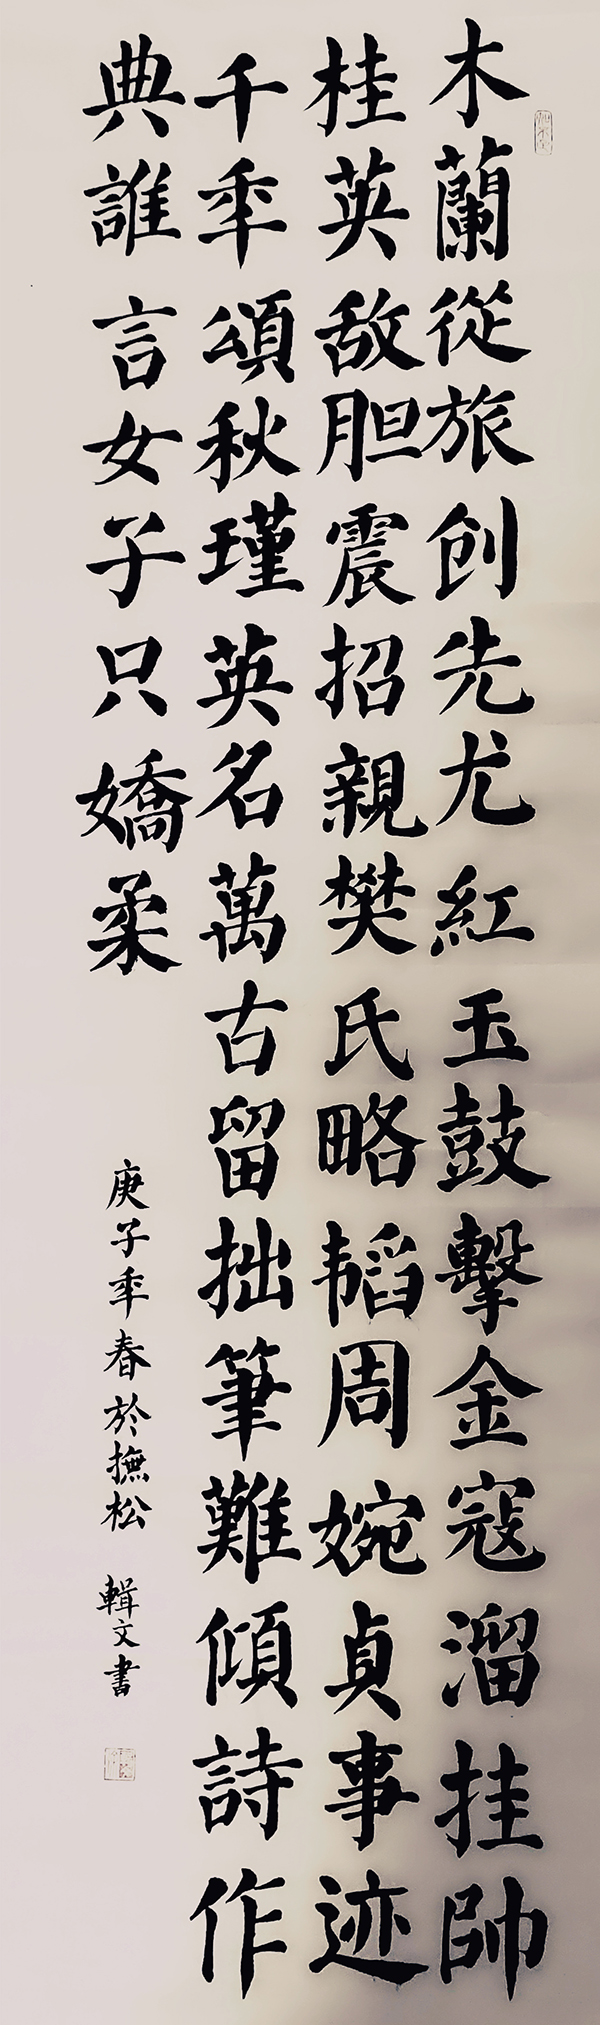 木蘭從旅創先尤紅玉鼓擊金寇溜挂帥
桂英敌胆震招親樊氏略韬周婉貞事迹
千年頌秋瑾英名萬古留拙筆難傾詩作
典誰言女子只嬌柔
庚子年春於撫松 輯文書